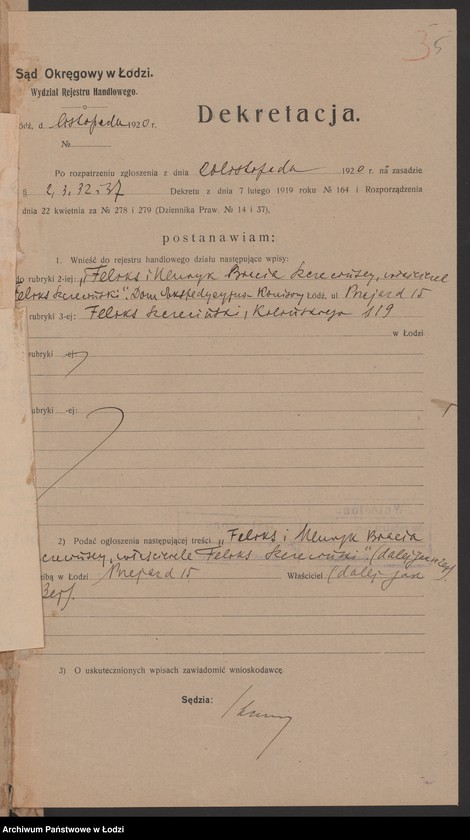 35
Sąd Okręgowy w Łodzi.
Wydział Rejestru Handlowego.
ódź, d. listopada 1920 r.
№
Dekretacja.
Po rozpatrzeniu zgłoszenia z dnia listopada 1920 r. na zasadzie
§ 2, 3, 32 i 37 Dekretu z dnia 7 lutego 1919 roku № 164 i Rozporządzenia
dnia 22 kwietnia za № 278 i 279 (Dziennika Praw. № 14 i 37),
postanawiam:
1. Wnieść do rejestru handlowego działu następujące wpisy:
do rubryki 2-iej: „Feliks i Henryk Bracia
Dom Łódź, ul. 15
rubryki 3-ej: Feliks 119
w Łodzi
rubryki -ej:
rubryki -ej:
2) Podać ogłoszenia następującej treści „Feliks i Henryk Bracia
Feliks (dalej
ibą w Łodzi 15 Właściciel (dalej jak
3) O uskutecznionych wpisach zawiadomić wnioskodawcę.
Sędzia:
Archiwum Państwowe w Łodzi